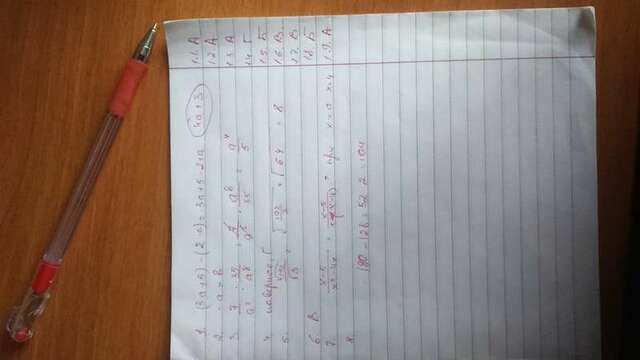 1. (3a+5) - (2-a) = 3a+5-2+a 4a+3
2. -a = b
3. 7/a² : 35/a⁸ = 7/a² · a⁸/35 = a⁴/5
4. наверное, Г
5. √192/√3 = √192/3 = √64 = 8
6. В
7. x-5/x²-4x = x-5/x(x-4) = при x=0 x=4
8.
180 - 128 = 52 · 2 = 104
1.1. А
1.2. А
1.3. А
1.4. Г
1.5. Б
1.6. В
1.7. В
1.8. Б
1.9. А